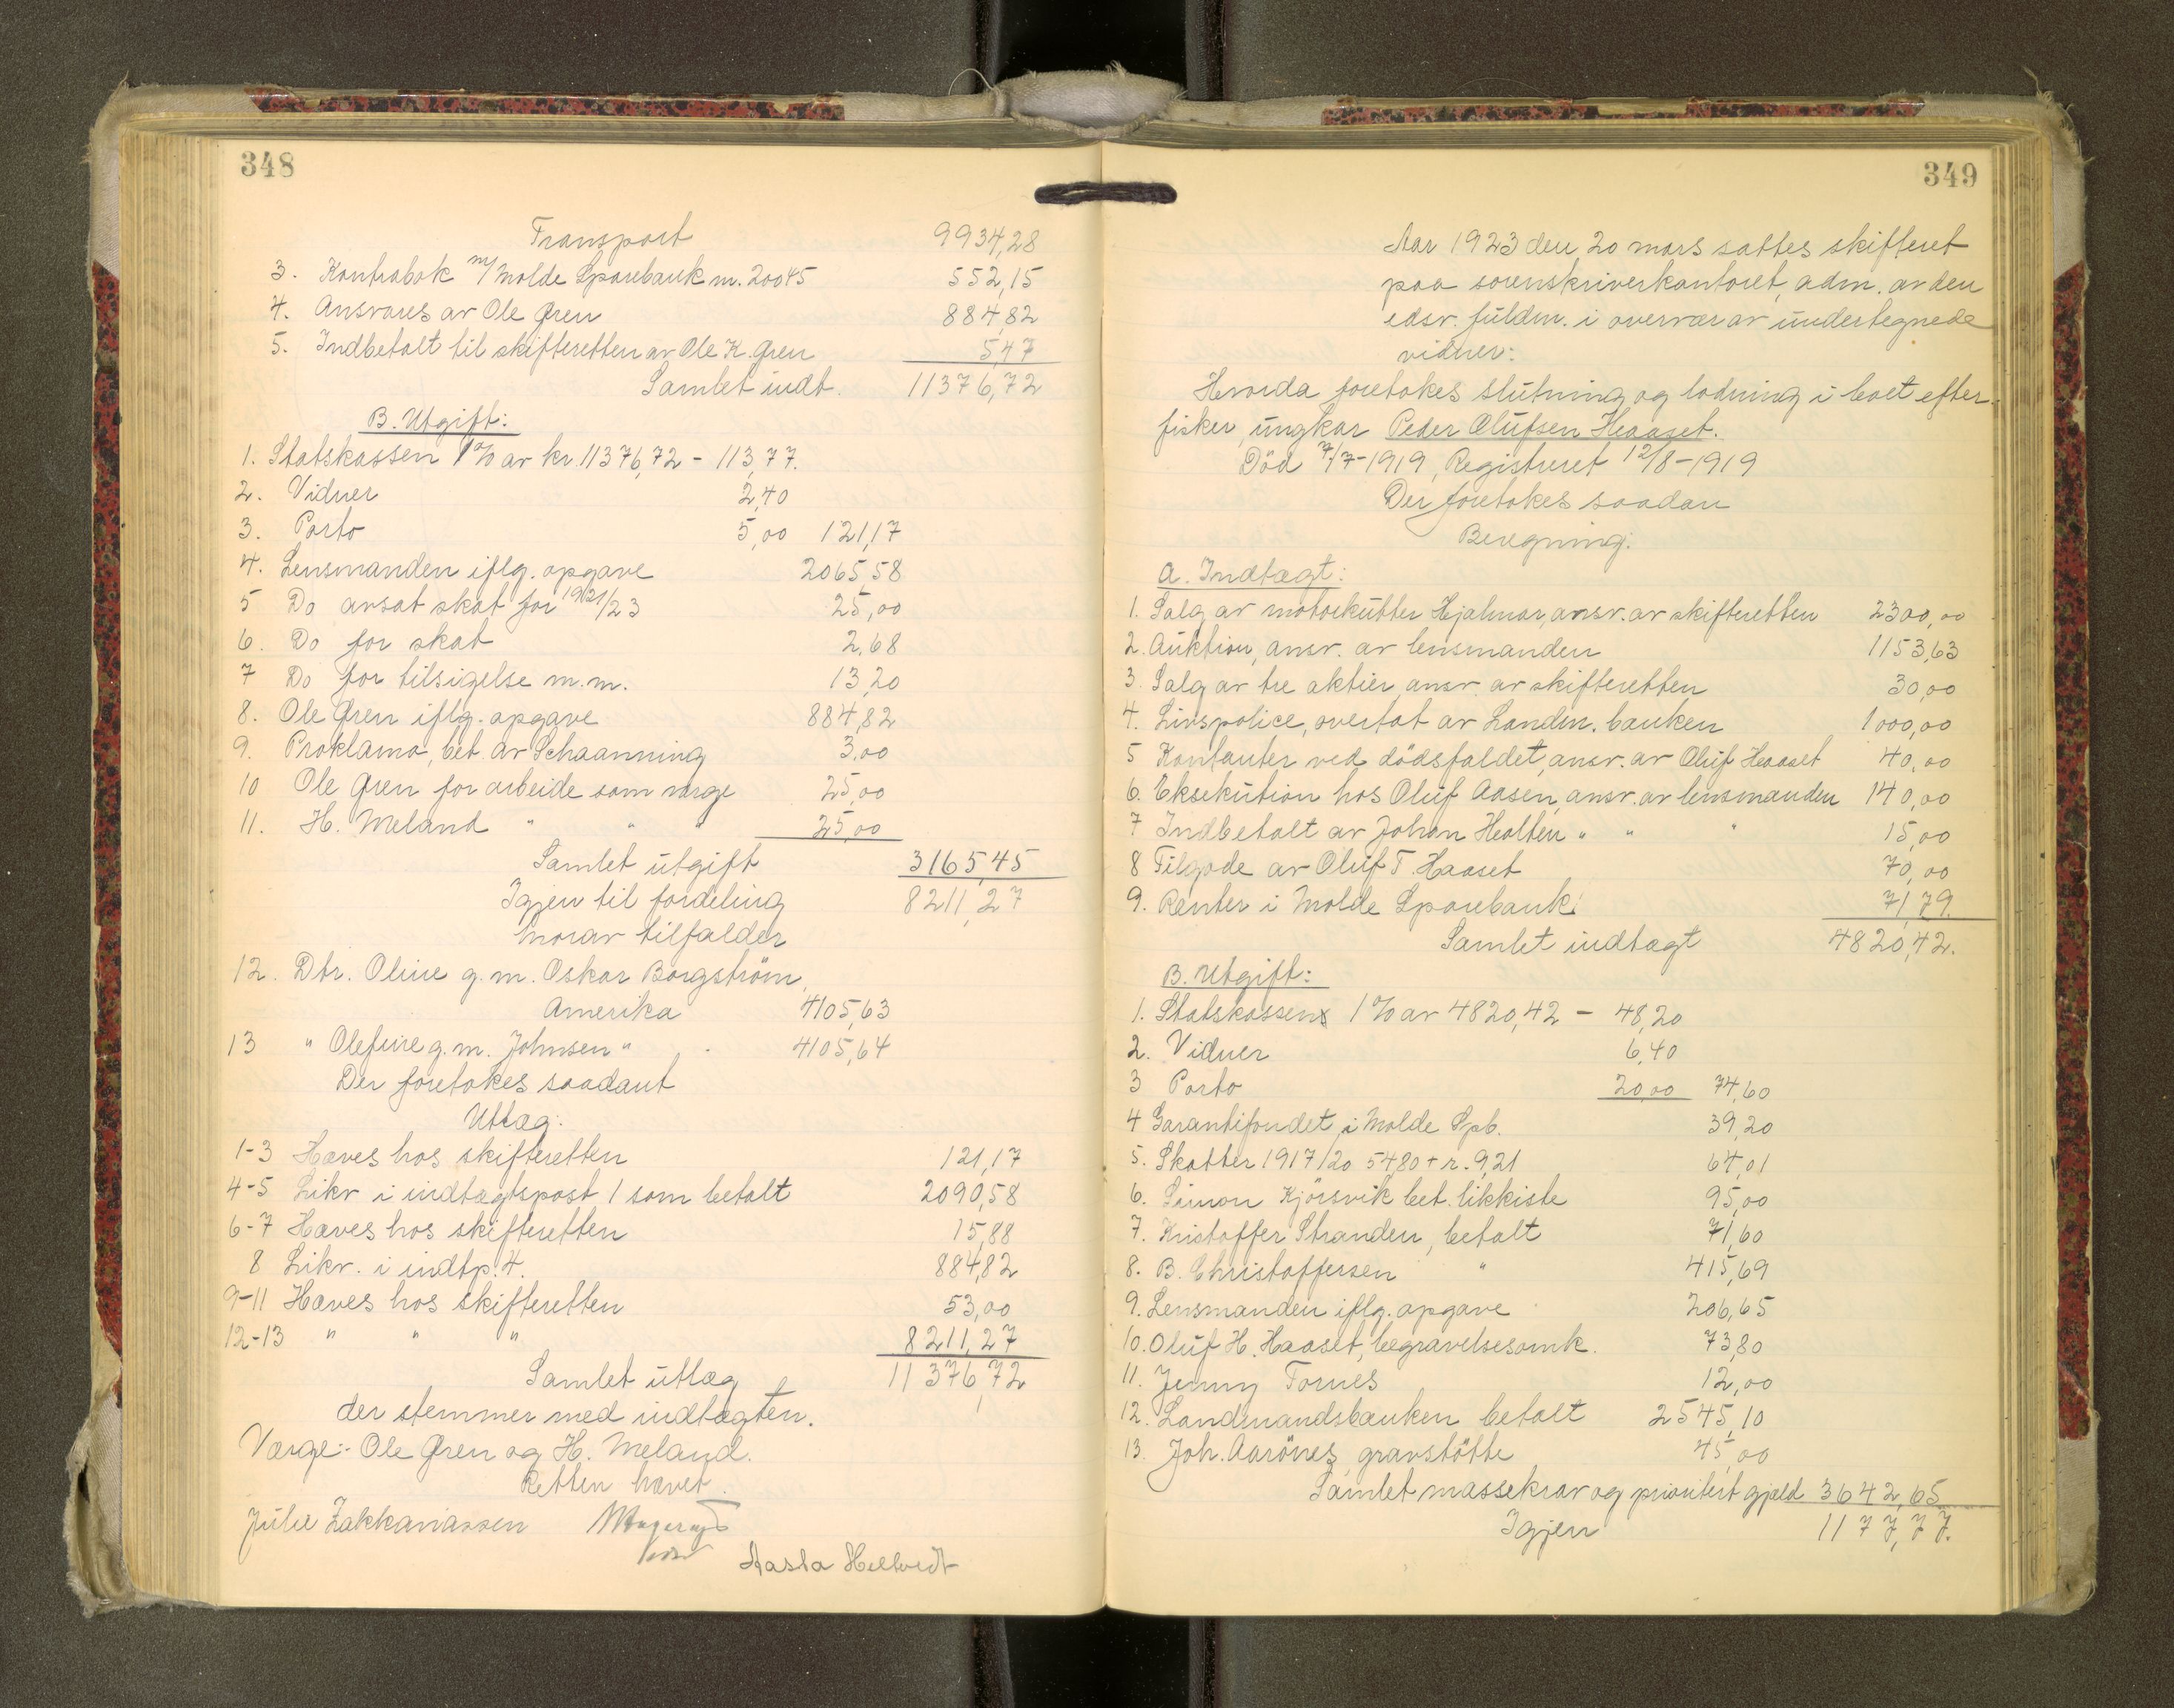 348
Transport 9934,28
3. Kontrabok m/ Molde Sparebank nr. 20045 552,15
4. Ansvares av Ole Gren 884,82
5. Indbetalt til skifteretten av Ole K. Gren 5,47
Samlet indt. 11376,72
B. Utgift:
1. Statskassen 1% av kr. 11376,72 - 113,77.
2. Vidner 2,40
3. Porto 5,00 121,17
4. Lensmanden iflg. opgave 2065,58
5 Do avsat skat for 1921/23 25,00
6. Do for skat 2,68
7 Do for tilsigelse m.m. 13,20
8. Ole Gren iflg. opgave 884,82
9. Proklama, bet. av Schaanning 3,00
10 Ole Gren for arbeide som verge 25,00
11. H. Meland " " " 25,00
Samlet utgift 3165,45
Igjen til fordeling 8211,27
hvorav tilfalder
12. Dtr. Oline g.m. Oskar Borgström,
Amerika 4105,63
13 " Olefine g.m. Johnsen " 4105,64
Der foretokes saadant
Utlæg:
1-3 Hæves hos skifteretten 121,17
4-5 Likv. i indtægtspost 1 som betalt 2090,58
6-7 Hæves hos skifteretten 15,88
8 Likv. i indtp. 4. 884,82
9-11 Hæves hos skifteretten 53,00
12-13 " " " 8211,27
Samlet utlæg 11376,72
der stemmer med indtægten.
Værge:- Ole Gren og H. Meland.
Retten hævet.
Julie Zakkariassen
Aasta Heltvedt
349
Aar 1923 den 20 mars sattes skifteret
paa sorenskriverkontoret, adm. av den
edsv. fuldm. i overvær av undertegnede
vidner:
Hvorda foretokes slutning og lodning i boet efter
fisker, ungkar Peder Olufsen Haaset.
Död 7/7-1919, Registreret 12/8-1919
Der foretokes saadan
Beregning:
A. Indtægt:
1. Salg av motorkutter Hjalmar, ansv. av skifteretten 2300,00
2. Auktion, ansv. av lensmanden 1153,63
3. Salg av tre aktier, ansv. av skifteretten 30,00
4. Livspolice, overtat av Landm. banken 1000,00
5 Kontanter ved dödsfaldet, ansv. av Oluf Haaset 40,00
6. Eksekution hos Oluf Aasen, ansv. av lensmanden 140,00
7 Indbetalt av Johan Healten " " " 15,00
8 Tilgode av Oluf T. Haaset 70,00
9. Renter i Molde Sparebank 71,79.
Samlet indtægt 4820,42.
B. Utgift:
1. Statskassen 1% av 4820,42 - 48,20
2. Vidner 6,40
3 Porto 20,00 74,60
4 Garantifondet i Molde Spb. 39,20
5. Skatter 1917/20 54,80 + r. 9,21 64,01
6. Simon Kjörsvik bet. likkiste 95,00
7. Kristoffer Stranden, betalt 71,60
8. B. Christoffersen " 415,69
9. Lensmanden iflg. opgave 206,65
10. Oluf H. Haaset, begravelsesomk. 73,80
11. Jenny Tornes 12,00
12. Landmandsbanken betalt 2545,10
13. Joh. Aarönes, gravstötte 45,00
Samlet massekrav og prioritert gjæld 3642,65
Igjen 1177,77.